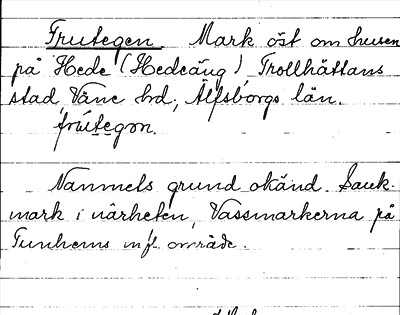 Frutegen Mark öst om husen
på Hede (Hedeäng), Trollhättans
stad, Väne hd; Älfsborgs län.
frutegon.
Namnets grund okänd. Sank-
mark i närheten, Vassmarkerna på
Tunhems m fl. område.